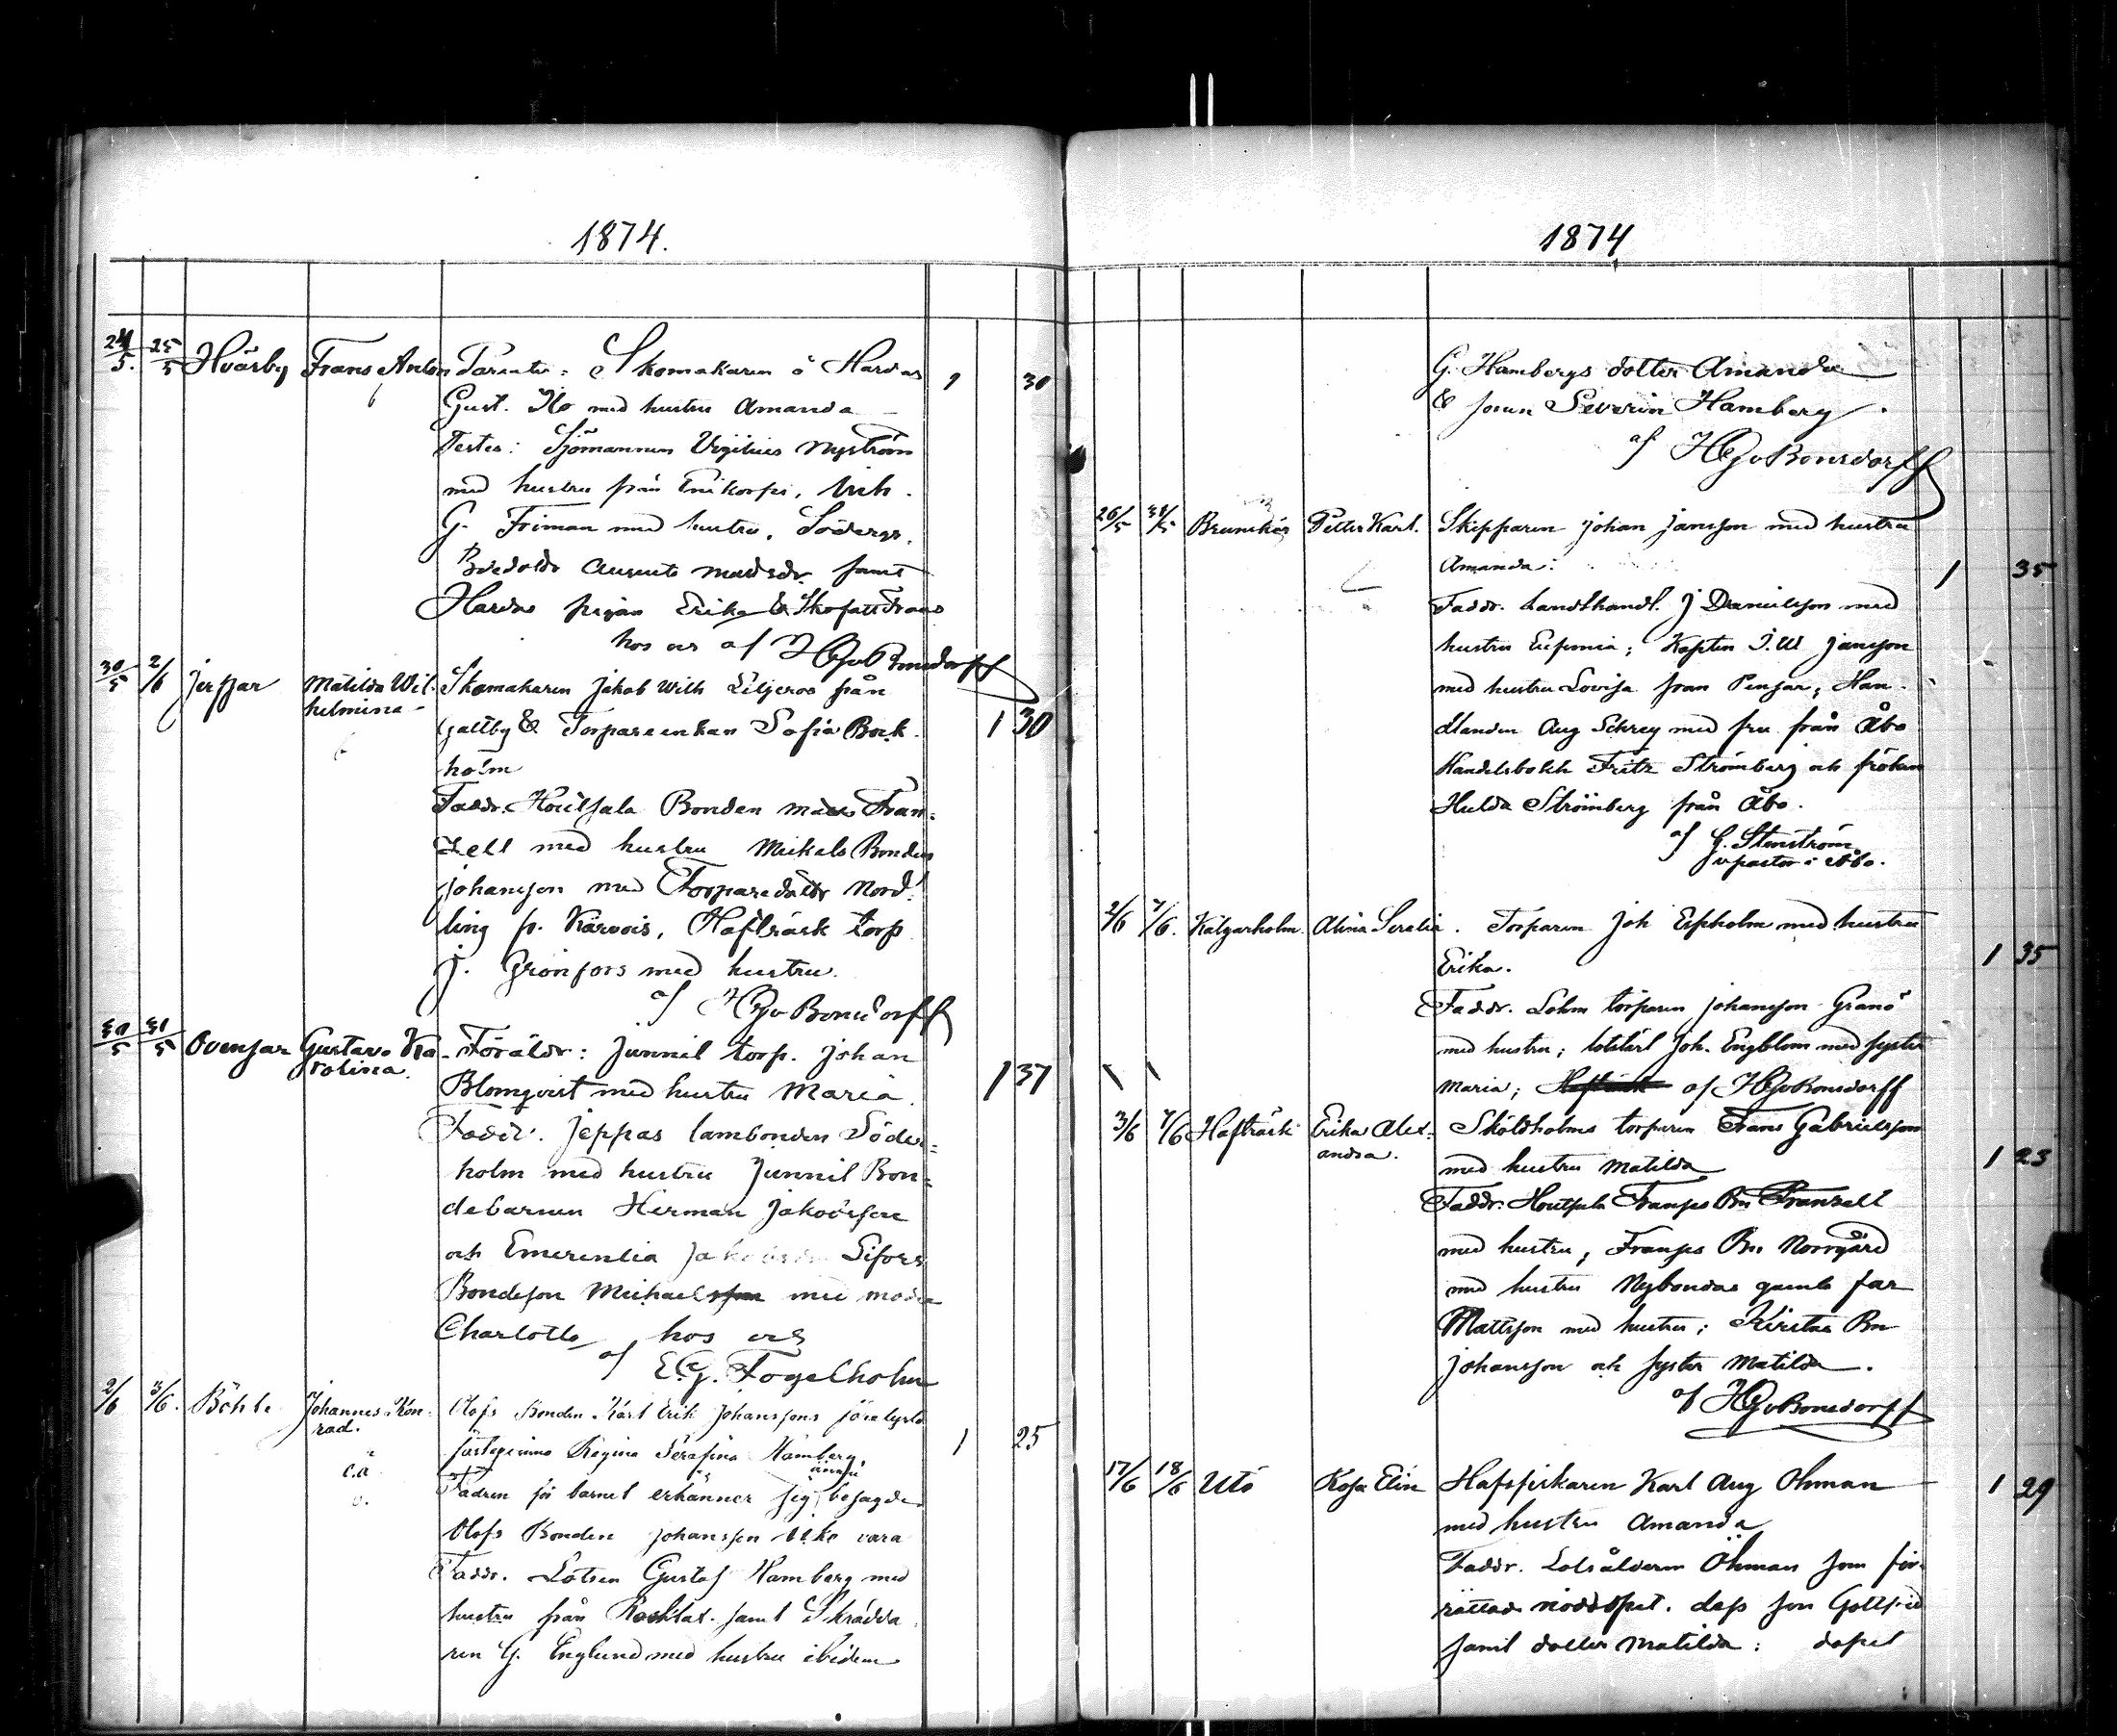 1874.
24/5. 25/5 Hväрby Frans Anton Parenter: Skomakaren å Hardas 1 30
Gust. Ilo med hustru Amanda
Testes: Sjömannen Virgilius Nyström
med hustru från
G. Friman med hustru, Södergr.
Auguste Matsdr. samt
Hardas pigan Erika &
hos oss af HGvBonsdorff
30/5 2/6 Jerfsar Matilda Wil- Skomakaren Jakob Wilh Liljeros från
helmina
Galtby & Torpareenkan Sofia Bock- 1 30
holm
Faddr. Houtsala Bonden Mats Fran-
zell med hustru Mickels Bonden
Johansson med Torparedottr Nord-
ling fr. Kärvois, Hafträsk torp.
J. Grönfors med hustru.
af HGvBonsdorff
30/5 31/5 Ovensar Gustava Ka- Föräldr: Junnil torp. Johan
rolina.
Blomqvist med hustru Maria. 1 37
Faddr. Jeppas lambonden Söder-
holm med hustru Junnil Bon-
debarnen Herman Jakobsson
och Emerentia Sifors
Bondeson Michaelsson med moder
Charlotta hos oss
af E.G. Fogelholm
2/6 3/6. Böhle Johannes Kon- Olofs Bonden Karl Erik Johanssons
rad.
Regina Serafina Hamberg. 1 25
ännu
Fadren för barnet erkänner sig besagde
Olofs Bonden Johansson icke vara
Faddr. Lotsen Gustaf Hamberg med
hustru från samt Skrädda-
ren G. Englund med hustru ibidem
1874
G. Hambergs dotter Amanda
& sonen Severin Hamberg.
af HGvBonsdorff
26/5 31/5 Brunskär Petter Karl. Skepparen Johan Jansson med hustru
Amanda: 1 35
Faddr. Landthandl. J Danielsson med
hustru Eufemia; Kapten J.W Jansson
med hustru Lovisa från Pensar; Han-
dlanden Aug Schrey med fru från Åbo
Handelsbokh Fritz Strömberg och fröken
Hulda Strömberg från Åbo.
af G. Stenström
vpastor i Åbo.
2/6 7/6. Kälgarholm. Alina Serafia. Torparen Joh Espholm med hustru
Erika. 1 35
Faddr. Lohm torparen Johansson Granö
med hustru; Joh. Engblom med syster
Maria; af HGvBonsdorff
3/6 7/6 Hafträsk Erika Alex- Sköldholms torparen Frans Gabrielsson
andra.
med hustru Matilda 1 23
Faddr. Houtsala Franses Bn Franzell
med hustru, Franses Bn Norrgård
med hustru Nybondas gamle far
Mattsson med hustru; Kirstas Bn
Johansson och syster Matilda.
af HGvBonsdorff
17/6 18/6 Utö Rosa Elin Hafsfiskaren Karl Aug Öhman 1 29
med hustru Amanda
Faddr. Lotsåldermn Öhman som för-
rättade nöddopet. dess son Gottfrid
samt dotter Matilda: döpet